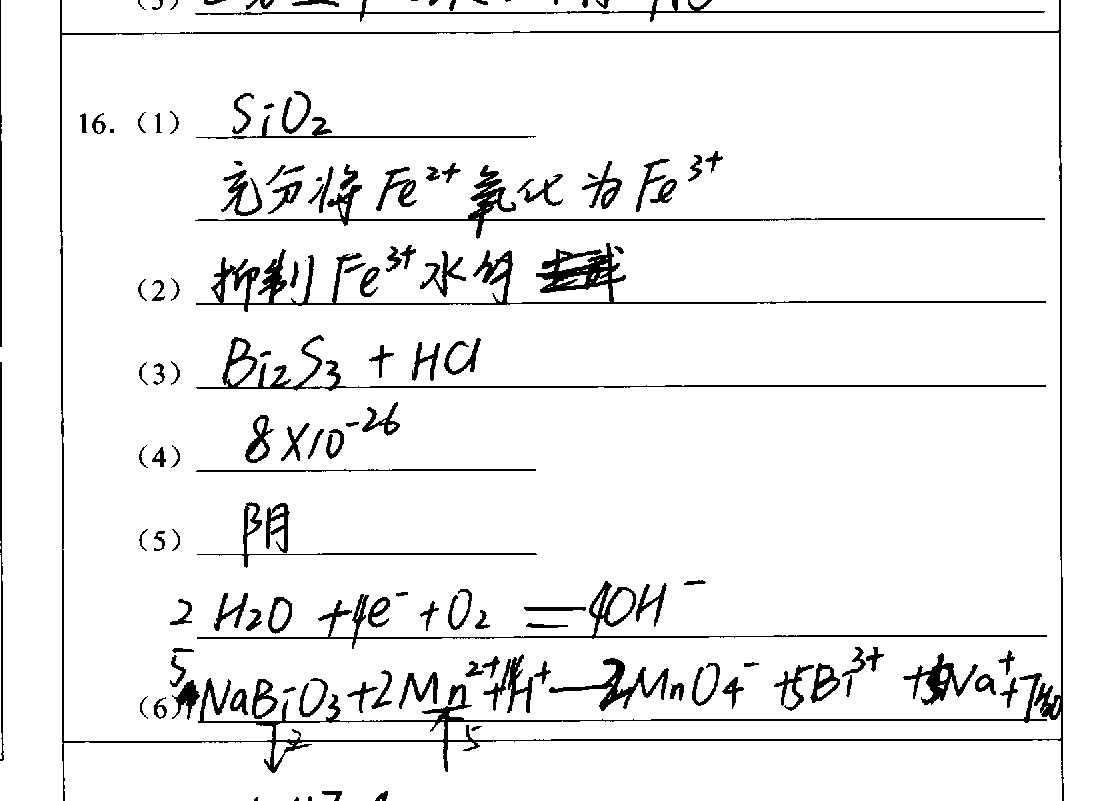 16.（1） SiO₂
充分将Fe²⁺氧化为Fe³⁺
（2） 抑制Fe³⁺水解
（3） Bi₂S₃ + HCl
（4） 8×10⁻²⁶
（5） 阴
2H₂O + 4e⁻ + O₂ = 4OH⁻
（6） 5NaBiO₃+2Mn²⁺+14H⁺—2MnO₄⁻+5Bi³⁺+5Na⁺+7H₂O
↓2 ↑5